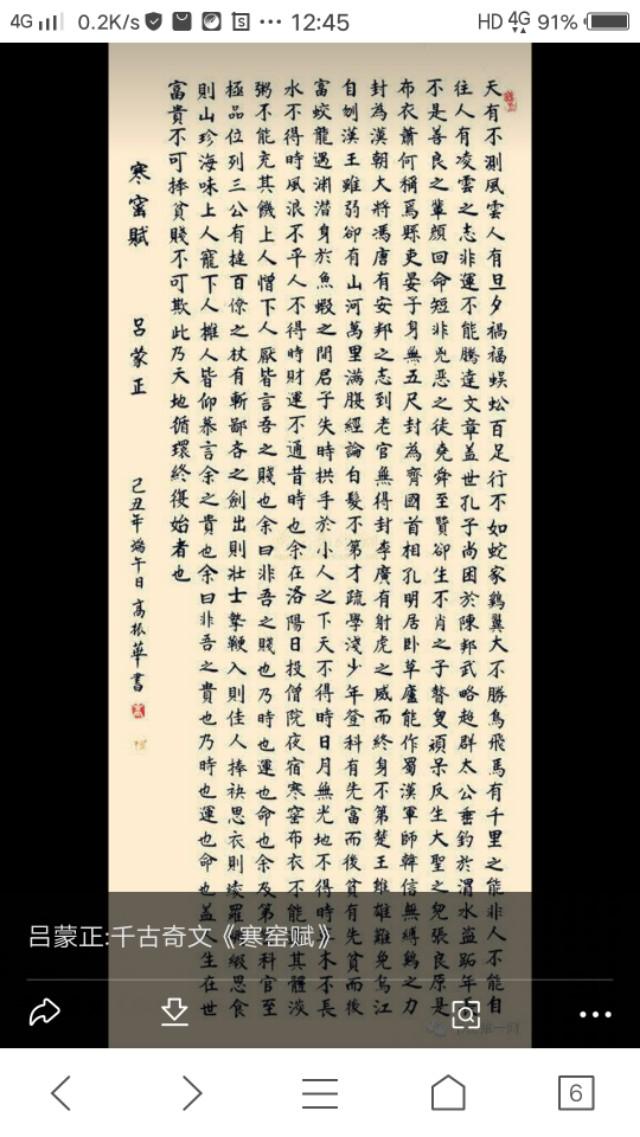 4G 0.2K/s 12:45 HD 4G 91%
天有不測風雲人有旦夕禍福蜈蚣百足行不如蛇家鷄翼大不勝鳥飛馬有千里之能非人不能自
往人有凌雲之志非運不能騰達文章蓋世孔子尚困於陳邦武略超群太公垂釣於渭水盜跖年
不是善良之輩顏回命短非兇惡之徒堯舜至賢卻生不肖之子瞽叟頑呆反生大聖之兒張良原是
布衣蕭何稱爲縣吏晏子身無五尺封為齊國首相孔明居卧草廬能作蜀漢軍師韓信無縛鷄之力
封為漢朝大將馮唐有安邦之志到老官無得封李廣有射虎之威而終身不第楚王雖雄難免烏江
自刎漢王雖弱卻有山河萬里滿腹經論白髮不第才疏學淺少年登科有先富而後貧有先貧而後
富蛟龍遇渊潜身於魚蝦之間君子失時拱手於小人之下天不得時日月無光地不得時木不長
水不得時風浪不平人不得時財運不通昔時也余在洛陽日投僧院夜宿寒窑布衣不能其體淡
粥不能充其饑上人憎下人厭皆言吾之賤也余曰非吾之賤也乃時也運也命也余及第科官至
極品位列三公有撻百僚之杖有斬鄙吝之劍出則壯士擎鞭入則佳人捧袂思衣則綾羅緞思食
則山珍海味上人寵下人擁人皆仰慕言余之貴也余曰非吾之貴也乃時也運也命也蓋生在世
富貴不可捧貧賤不可欺此乃天地循環終復始者也
寒窑賦 呂蒙正 己丑年端午日高振華書
吕蒙正:千古奇文《寒窑赋》
6